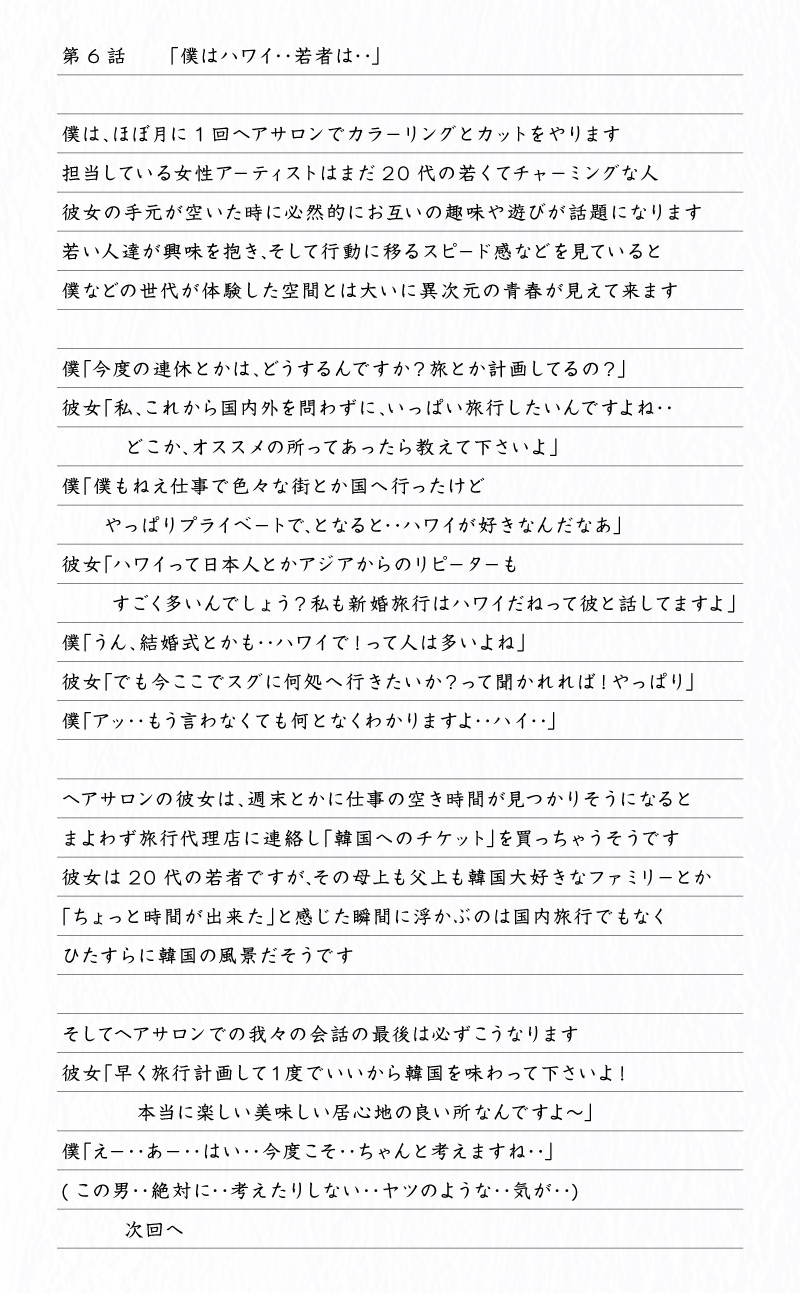 第6話　「僕はハワイ‥若者は‥」
僕は、ほぼ月に1回ヘアサロンでカラーリングとカットをやります
担当している女性アーティストはまだ20代の若くてチャーミングな人
彼女の手元が空いた時に必然的にお互いの趣味や遊びが話題になります
若い人達が興味を抱き、そして行動に移るスピード感などを見ていると
僕などの世代が体験した空間とは大いに異次元の青春が見えて来ます
僕「今度の連休とかは、どうするんですか？旅とか計画してるの？」
彼女「私、これから国内外を問わずに、いっぱい旅行したいんですよね‥
どこか、オススメの所ってあったら教えて下さいよ」
僕「僕もねえ仕事で色々な街とか国へ行ったけど
やっぱりプライベートで、となると‥ハワイが好きなんだなあ」
彼女「ハワイって日本人とかアジアからのリピーターも
すごく多いんでしょう？私も新婚旅行はハワイだねって彼と話してますよ」
僕「うん、結婚式とかも‥ハワイで！って人は多いよね」
彼女「でも今ここでスグに何処へ行きたいか？って聞かれれば！やっぱり」
僕「アッ‥もう言わなくても何となくわかりますよ‥ハイ‥」
ヘアサロンの彼女は、週末とかに仕事の空き時間が見つかりそうになると
まよわず旅行代理店に連絡し「韓国へのチケット」を買っちゃうそうです
彼女は20代の若者ですが、その母上も父上も韓国大好きなファミリーとか
「ちょっと時間が出来た」と感じた瞬間に浮かぶのは国内旅行でもなく
ひたすらに韓国の風景だそうです
そしてヘアサロンでの我々の会話の最後は必ずこうなります
彼女「早く旅行計画して1度でいいから韓国を味わって下さいよ！
本当に楽しい美味しい居心地の良い所なんですよ～」
僕「えー‥あー‥はい‥今度こそ‥ちゃんと考えますね‥」
(この男‥絶対に‥考えたりしない‥ヤツのような‥気が‥)
次回へ